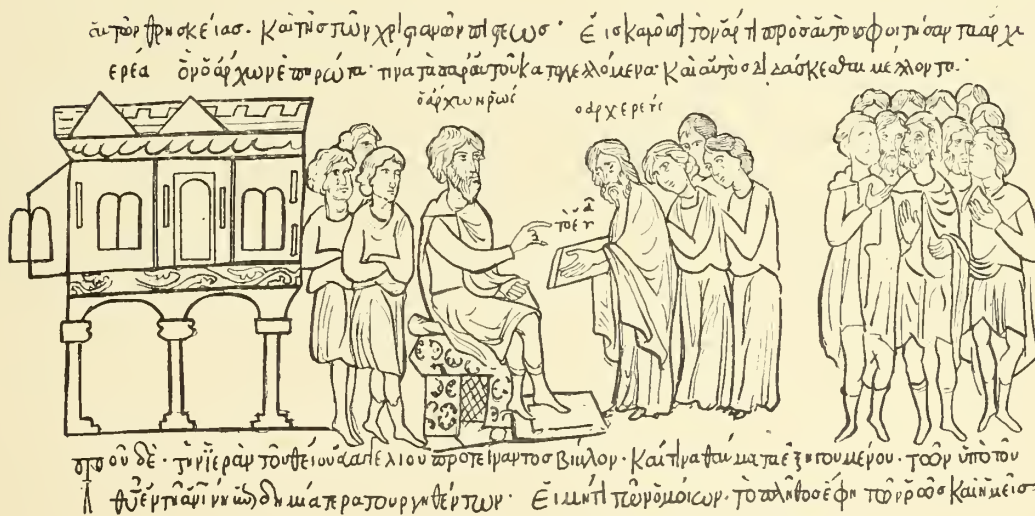 αὐτῶν θρησκείας· Καὶ τῆς τῶν χριστιανῶν πίστεως· Εἰσκαλοῦσι τὸν ἄρτι πρὸς αὐτοὺς φοιτήσαντα ἀρχι
ερέα ὃν ὁ ἄρχων ἐπηρώτα· τίνα τὰ παρ αὐτοῦ καταγγελλόμενα· Καὶ αὐτοὺς διδάσκεσθαι μέλλοντα·
ὁ ἄρχων ρῶς ὁ αρχιερεύς
τὸ εὐα
τοῦ δὲ· τὴν ἱερὰν τοῦ θείου εὐαγγελίου προτείναντος βίβλον· Καί τινα θαύματα ἐξηγουμένου· τῶν ὑπὸ τοῦ
θῦ ἐν τῇ τερατουργηθέντων· Εἰ μή τι τῶν ὁμοίων· τὸ πλῆθος ἔφη τῶν ρῶς καὶ ἡμεῖς